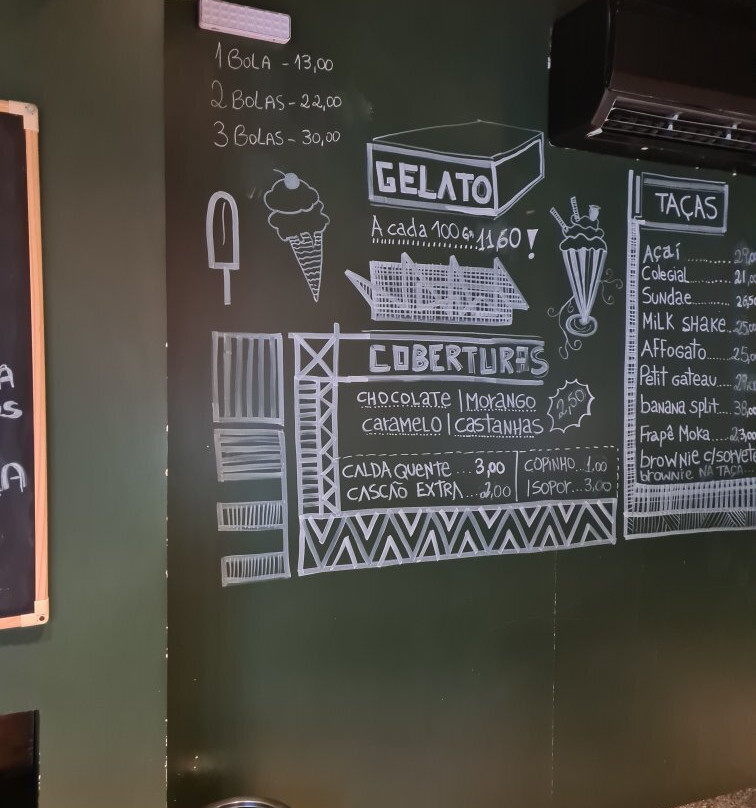 1 BOLA - 13,00
2 BOLAS - 22,00
3 BOLAS - 30,00
GELATO
A cada 100 Gr. 11,60!
COBERTURAS
CHOCOLATE | MORANGO
CARAMELO | CASTANHAS
2,50
CALDA QUENTE ... 3,00
CASCÃO EXTRA ... 2,00
COPINHO ... 1,00
ISOPOR ... 3,00
TAÇAS
AÇAÍ ........
Colegial ........ 21,0
Sundae ........
MILK SHAKE ..
AFFOGATO .....
Petit gateau ....
banana split ....
Frapê Moka ....
brownie c/sorvete
brownie NA TAÇA
A
A